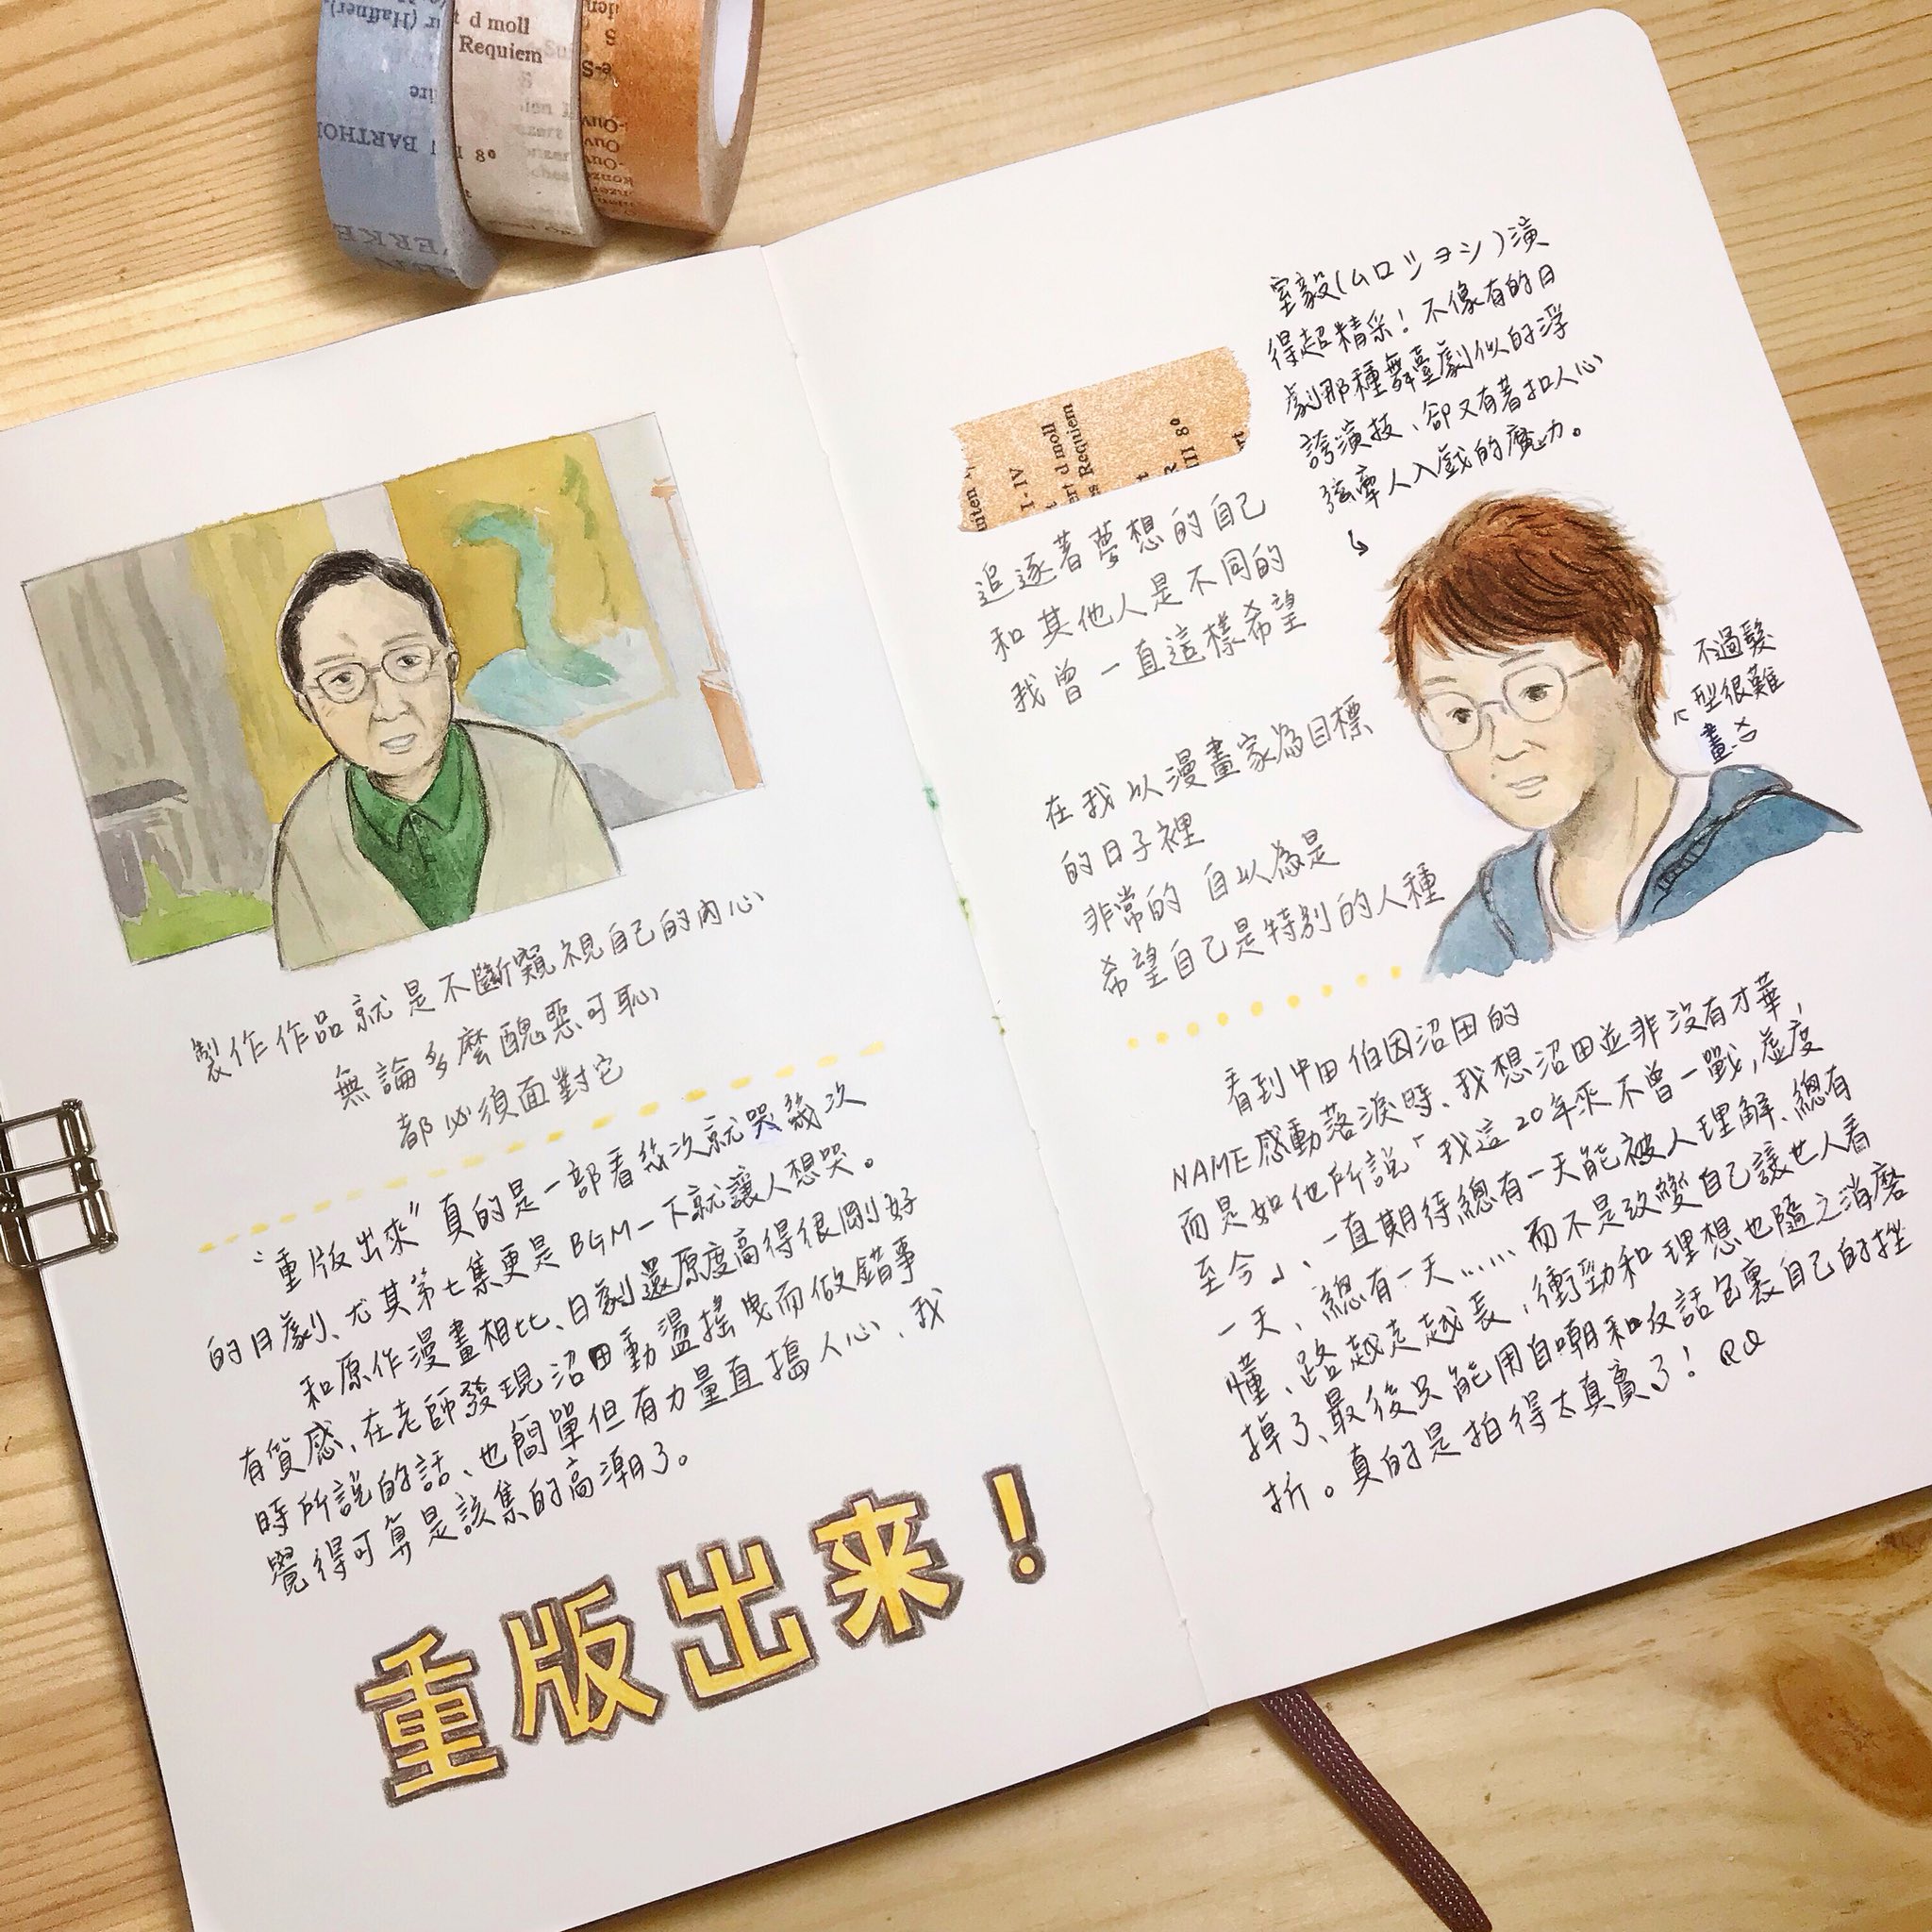 d moll
Requiem
BARTHOL
8º
製作作品就是不斷窺視自己的內心
無論多麼醜惡可恥
都必須面對它
"重版出來"真的是一部看幾次就哭幾次
的日劇、尤其第七集更是BGM一下就讓人想哭。
和原作漫畫相比、日劇還原度高得很剛好
有質感、在老師發現沼田動盪搖曳而做錯事
時所說的話、也簡單但有力量直搗人心、我
覺得可算是該集的高潮了。
重版出来!
I-IV
ert d moll
s Requiem
III 8º
室毅(ムロツヨシ)演
得超精采!不像有的日
劇那種舞臺劇似的浮
誇演技、卻又有著扣人心
弦牽人入戲的魔力。
追逐著夢想的自己
和其他人是不同的
我曾一直這樣希望
不過髮
型很難
畫
在我以漫畫家為目標
的日子裡
非常的 自以為是
希望自己是特別的人種
看到中田伯因沼田的
NAME感動落淚時、我想沼田並非沒有才華,
而是如他所說「我這20年來不曾一戰,虛度
至今」、一直期待總有一天能被人理解、總有
一天,總有一天……而不是改變自己讓世人看
懂、路越走越長,衝勁和理想也隨之消磨
掉了、最後只能用自嘲和反話包裹自己的挫
折。真的是拍得太真實了! QQ